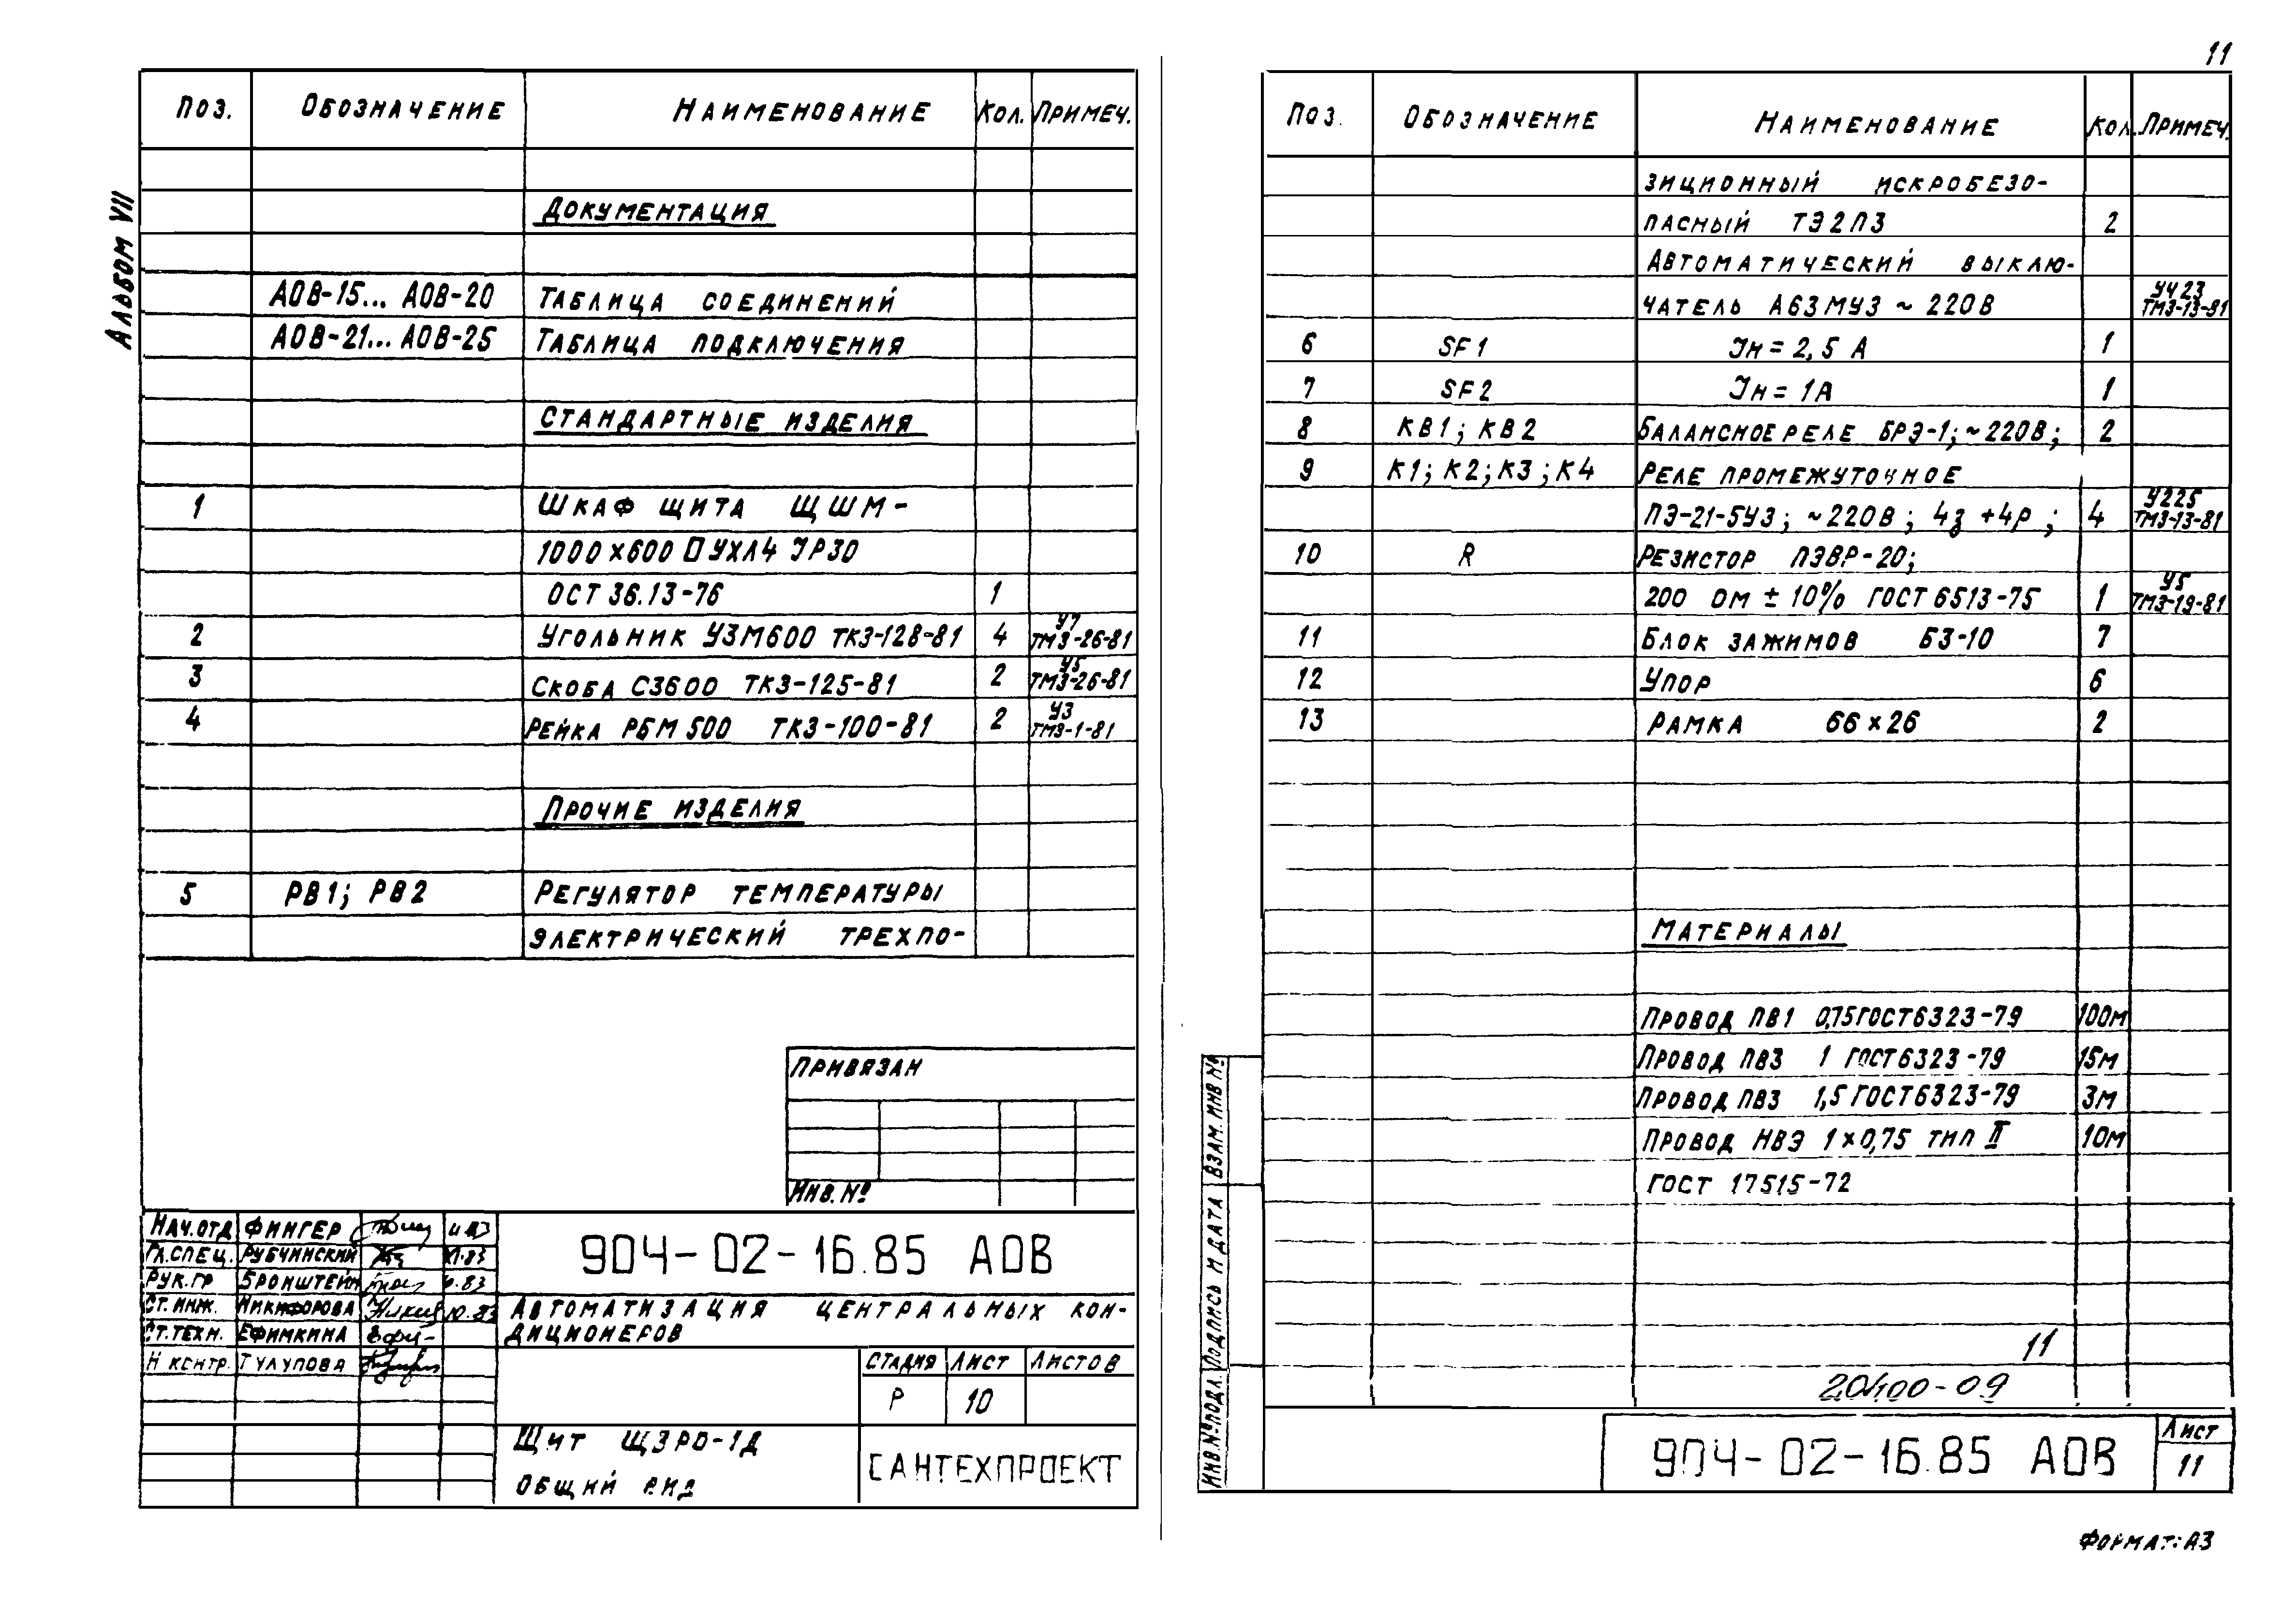 11
Альбом VII
Поз. Обозначение Наименование Кол. Примеч.
Документация
АОВ-15... АОВ-20 Таблица соединений
АОВ-21... АОВ-25 Таблица подключения
Стандартные изделия
1 Шкаф щита ЩШМ-
1000×600 П УХЛ4 IP30
ОСТ 36.13-76 1
2 Угольник УЗМ600 ТК3-128-81 4 У7 ТМ3-26-81
3 Скоба С3600 ТК3-125-81 2 У5 ТМ3-26-81
4 Рейка РБМ 500 ТК3-100-81 2 У3 ТМ3-1-81
Прочие изделия
5 РВ1; РВ2 Регулятор температуры
электрический трехпо-
Привязан
Инв. №
Нач.отд Фингер
Гл.спец. Рубчинский XI.83
Рук.гр Бронштейн
Ст.инж. Никифорова 10.83
Ст.техн. Ефимкина
Н контр. Тулупова
904-02-16.85 АОВ
Автоматизация центральных кон-
диционеров
Стадия Лист Листов
Р 10
Щит ЩЗРО-1Д
общий вид
САНТЕХПРОЕКТ
Поз. Обозначение Наименование Кол. Примеч.
зиционный искробезо-
пасный ТЭ2П3 2
Автоматический выклю-
чатель А63МУ3 ~ 220В УЧ23 ТМ3-13-81
6 SF1 Iн = 2,5 А 1
7 SF2 Iн = 1А 1
8 КВ1; КВ2 Балансное реле БРЭ-1; ~220В; 2
9 К1; К2; К3; К4 Реле промежуточное
ПЭ-21-5У3; ~220В; 4з +4р; 4 У225 ТМ3-13-81
10 R Резистор ПЭВР-20;
200 Ом ± 10% ГОСТ 6513-75 1 У5 ТМ3-19-81
11 Блок зажимов БЗ-10 7
12 Упор 6
13 Рамка 66×26 2
Материалы
Провод ПВ1 0,75 ГОСТ 6323-79 100м
Провод ПВ3 1 ГОСТ 6323-79 15м
Провод ПВ3 1,5 ГОСТ 6323-79 3м
Провод НВЭ 1×0,75 тип II 10м
ГОСТ 17515-72
11
20400-09
Инв.№подл. Подпись и дата Взам.инв №
904-02-16.85 АОВ
Лист
11
Формат: А3